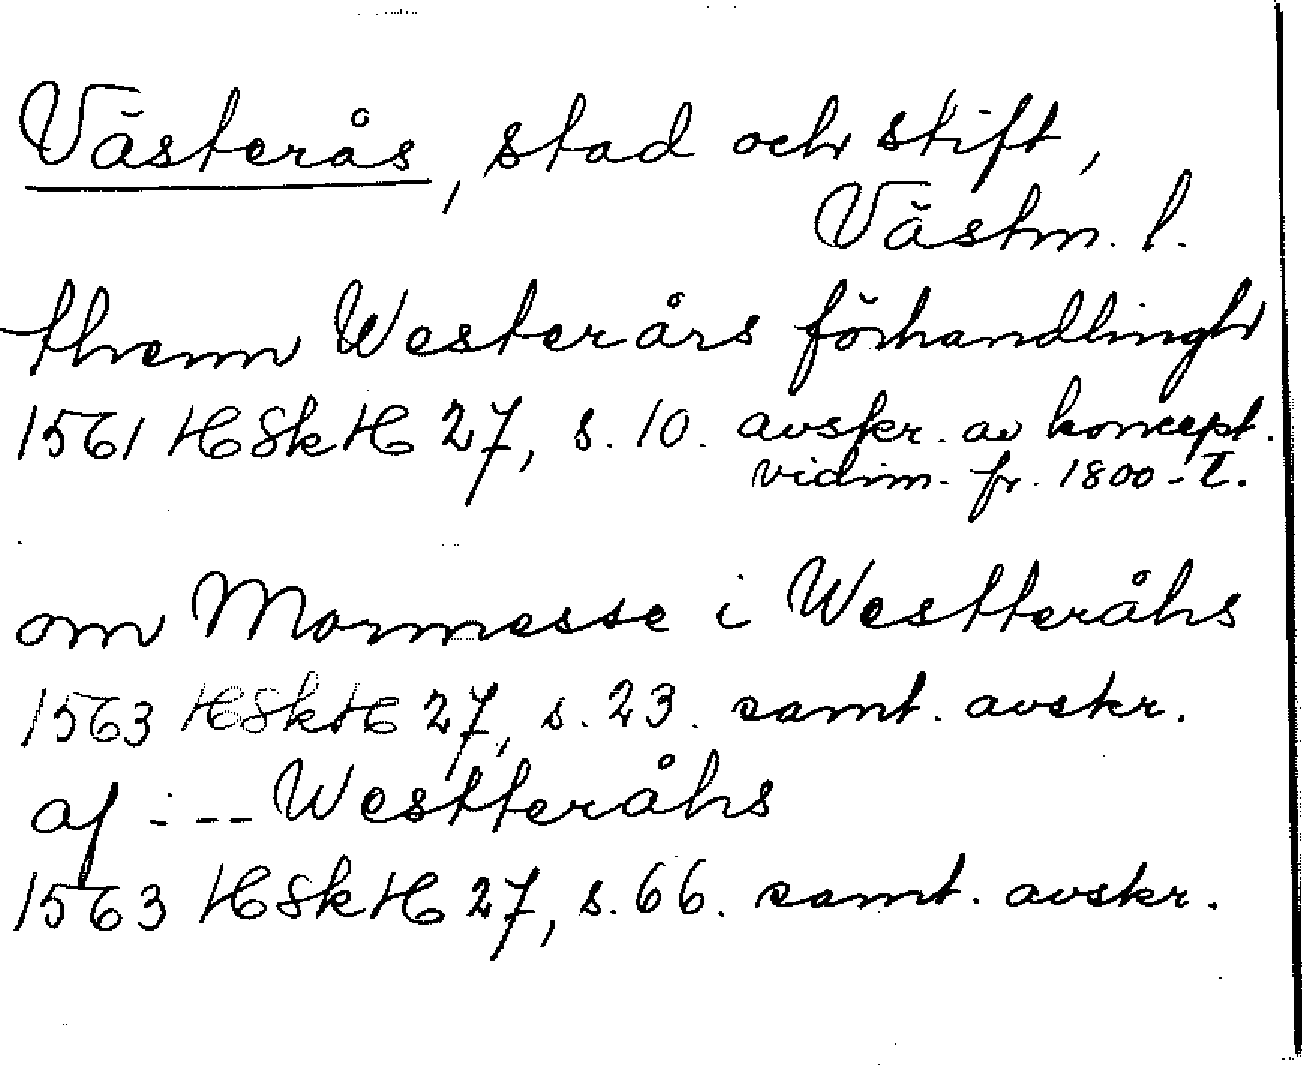 Västerås, stad och stift,
Västm. l.
thenn Westerårs förhandlingh
1561 HSkH 27, s. 10. avskr. av koncept.
vidim. fr. 1800-t.
om Mormesse i Westteråhs
1563 HSkH 27, s. 23. samt. avskr.
af --- Westteråhs
1563 HSkH 27, s. 66. samt. avskr.